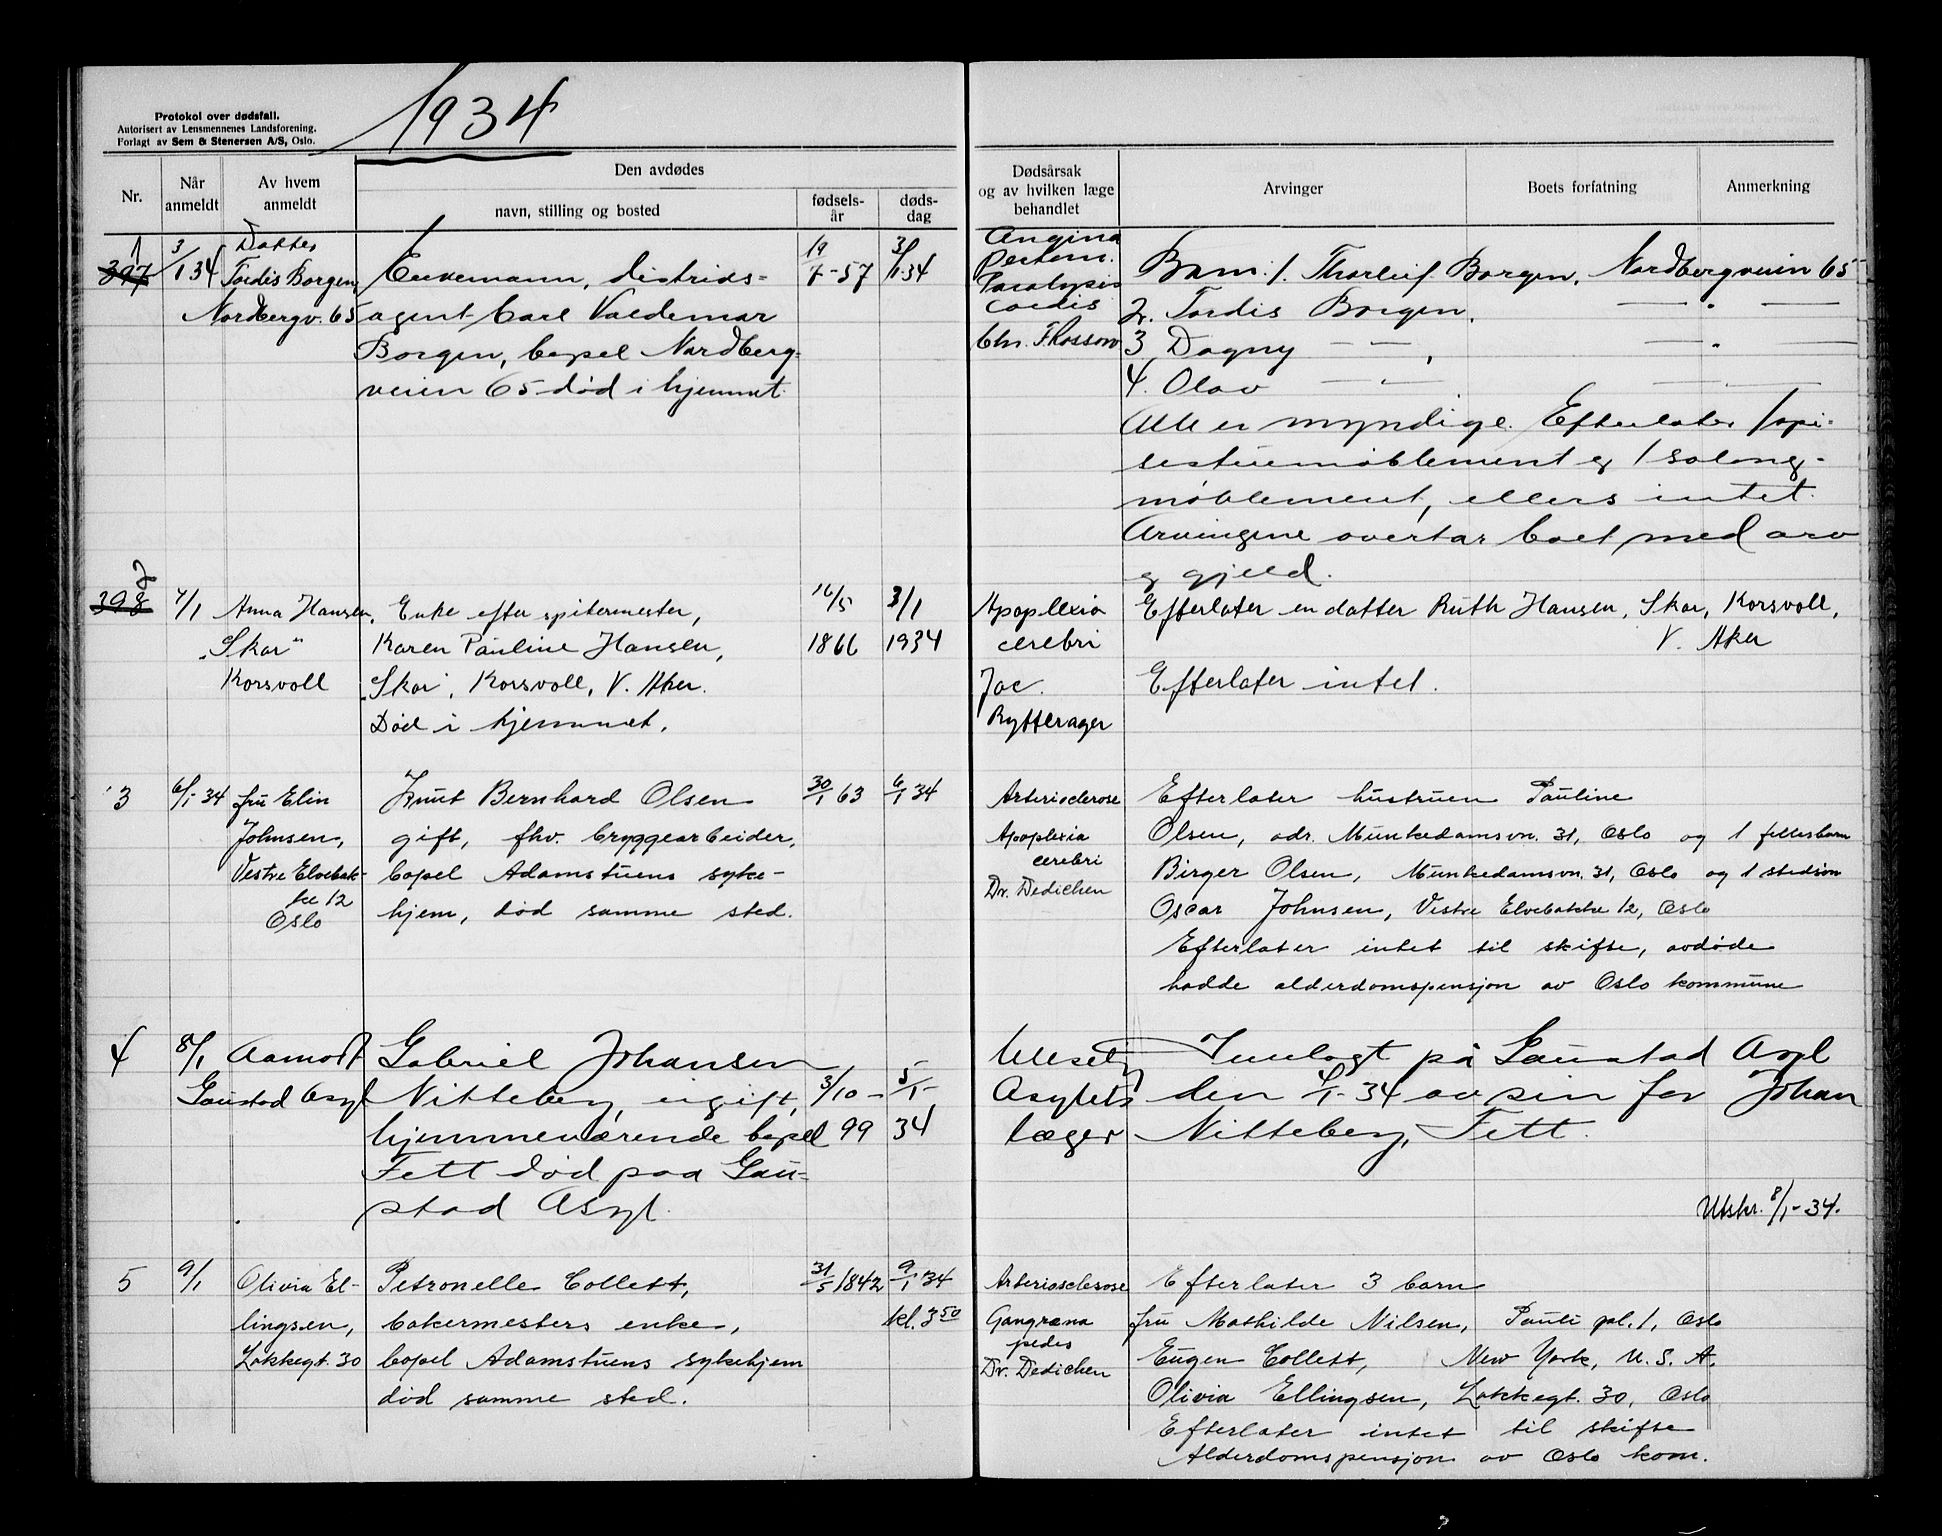 Protokol over dødsfall.
Autorisert av Lensmennenes Landsforening.
Forlagt av Sem & Stenersen A/S, Oslo.
1934
Nr.
Når anmeldt
Av hvem anmeldt
Den avdødes
navn, stilling og bosted
fødsels-år
døds-dag
Dødsårsak og av hvilken læge behandlet
Arvinger
Boets forfatning
Anmerkning
1
397
3/1 34
Datter
Tordis Borgen,
Nordbergv. 65
Enkemann, distrikts-
agent Carl Valdemar
Borgen, bopel Nordberg-
veien 65 død i hjemmet.
19/7-57
3/1-34
Angina
Pectom.
Paralysis
cordis
Chr. F. Rossow
Barn: 1. Thorleif Borgen, Nordbergveien 65
2. Tordis Borgen, — " —
3 Dagny — " —, — " —
4. Olav — " — — " —
Alle er myndige. Efterlater 1 spi-
sestuemøblement og 1 salong-
møblement, ellers intet.
Arvingene overtar boet med arv
og gjeld.
2
398
4/1
Anna Hansen,
"Skar"
Korsvoll
Enke efter spikermester,
Karen Pauline Hansen,
"Skar", Korsvoll, V. Aker.
Død i hjemmet.
16/5
1866
3/1
1934
Apoplexia
cerebri
Jac.
Rytterager
Efterlater en datter Ruth Hansen, Skar, Korsvoll,
V. Aker
Efterlater intet.
3
6/1-34
fru Elin
Johnsen,
Vestre Elvebak-
ke 12
Oslo
Knut Bernhard Olsen
gift, fhv. bryggearbeider,
bopel Adamstuens syke-
hjem, død samme sted.
30/1 63
6/1 34
Arteriosclerose
Apoplexia
cerebri
Dr. Dedichen
Efterlater hustruen Pauline
Olsen, adr. Munkedamsvn. 31, Oslo og 1 fellesbarn
Birger Olsen, Munkedamsvn. 31, Oslo og 1 stedsøn
Oscar Johnsen, Vestre Elvebakke 12, Oslo
Efterlater intet til skifte, avdøde
hadde alderdomspensjon av Oslo kommune
4
8/1
Aamodt
Gaustad Asyl
Gabriel Johansen
Nitteberg, ugift,
hjemmeværende bopel
Fett død paa Gau-
stad Asyl.
3/10-
99
5/1-
34
Asylets
læger
Innlagt på Gaustad Asyl
den 4/1-34 av sin far Johan
Nitteberg, Fett.
Utskr. 8/1-34.
5
9/1
Olivia El-
lingsen,
Løkkegt. 30
Petronelle Collett,
bakermesters enke,
bopel Adamstuens sykehjem
død samme sted.
31/5 1842
9/1 34
kl. 3 50
Arteriosclerose
Gangræna
pedis
Dr. Dedichen
Efterlater 3 barn
fru Mathilde Nilsen, Pauli pl. 1, Oslo
Eugen Collett, New York, U. S. A.
Olivia Ellingsen, Løkkegt. 30, Oslo
Efterlater intet til skifte
Alderdomspensjon av Oslo kom.